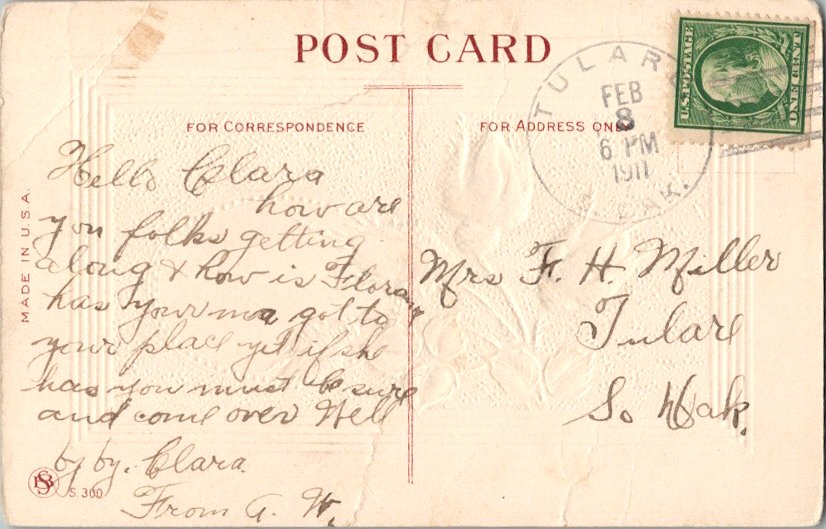 POST CARD
FOR CORRESPONDENCE
FOR ADDRESS ONLY
MADE IN U.S.A.
U.S. POSTAGE
ONE CENT
TULARE
FEB
8
6 PM
1911
S. DAK.
Hello Clara
how are
you folks getting
along & how is Floran
has your ma got to
your place yet if she
has you must be sure
and come over Well
by by. Clara.
From A. W.
Mrs F. H. Miller
Tulare
So Dak.
S. 300